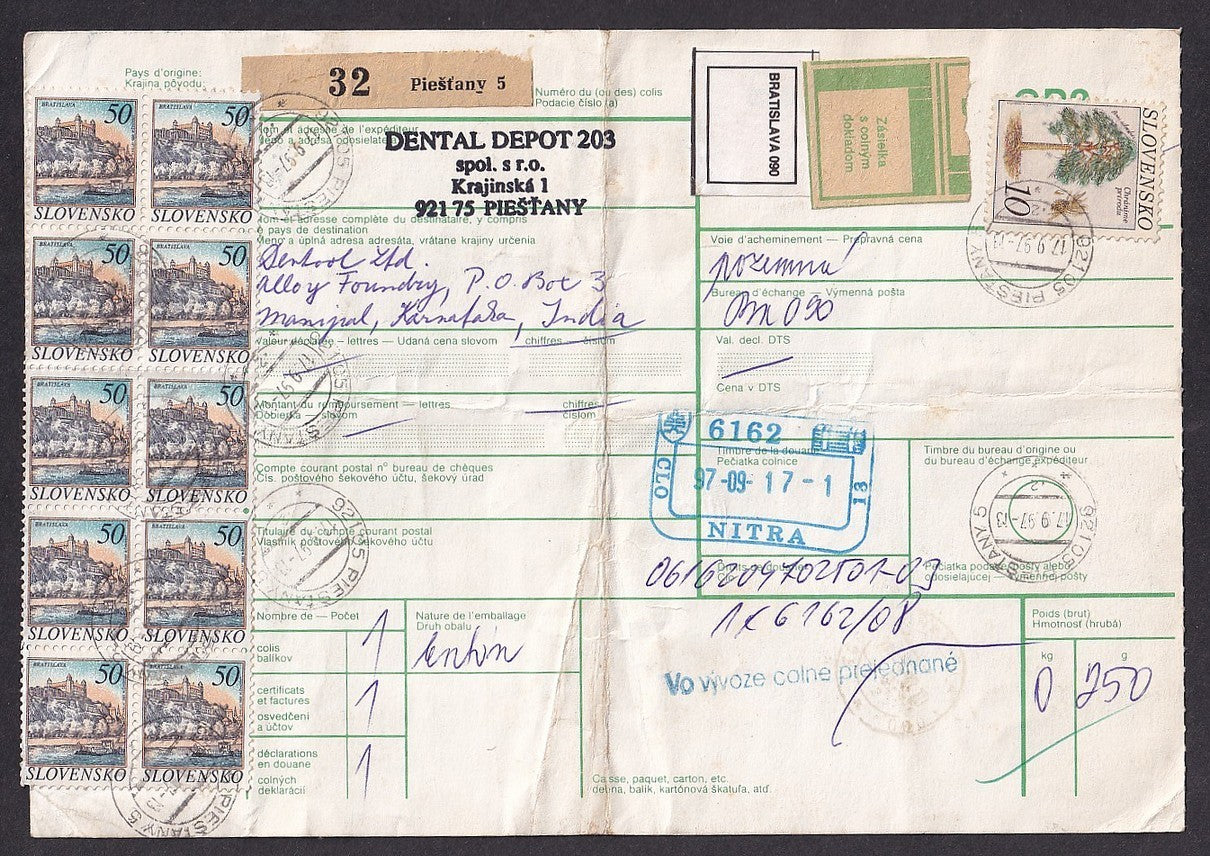 Pays d'origine:
Krajina pôvodu:
32 Piešťany 5
Numéro du (ou des) colis
Podacie číslo (a)
BRATISLAVA 090
Zásielka
s colným
dokladom
CP2
SLOVENSKO
10
DENTAL DEPOT 203
spol. s r.o.
Krajinská 1
921 75 PIEŠŤANY
Nom et adresse complète du destinataire, y compris
le pays de destination
Meno a úplná adresa adresáta, vrátane krajiny určenia
Dentool Ltd.
Alloy Foundry, P.O. Box 3
Manipal, Karnataka, India
Voie d'acheminement — Prepravná cena
pozemná
Bureau d'échange — Výmenná pošta
BA 090
Valeur déclarée – lettres – Udaná cena slovom chiffres – číslom
Val. decl. DTS
Cena v DTS
Montant du remboursement — lettres chiffres
Dobierka — slovom číslom
Compte courant postal n° bureau de chèques
Čís. poštového šekového účtu, šekový úrad
Titulaire du compte courant postal
Vlastník poštového šekového účtu
Timbre de la douane
Pečiatka colnice
6162
CLO 97-09-17-1 13
NITRA
Timbre du bureau d'origine ou
du bureau d'échange expéditeur
921 05 PIEŠŤANY 5
17.9.97-13
Pečiatka podacej pošty alebo
odosielajúcej výmennej pošty
1x 6162/08
Vo vývoze colne prejednané
Nombre de — Počet
Nature de l'emballage
Druh obalu
kartón
colis
balíkov
1
certificats
et factures
osvedčení
a účtov
1
déclarations
en douane
colných
deklarácií
1
Caisse, paquet, carton, etc.
debna, balík, kartónová škatuľa, atď.
Poids (brut)
Hmotnosť (hrubá)
kg g
0 250
BRATISLAVA 50
SLOVENSKO
BRATISLAVA 50
SLOVENSKO
BRATISLAVA 50
SLOVENSKO
BRATISLAVA 50
SLOVENSKO
BRATISLAVA 50
SLOVENSKO
BRATISLAVA 50
SLOVENSKO
BRATISLAVA 50
SLOVENSKO
BRATISLAVA 50
SLOVENSKO
BRATISLAVA 50
SLOVENSKO
BRATISLAVA 50
SLOVENSKO